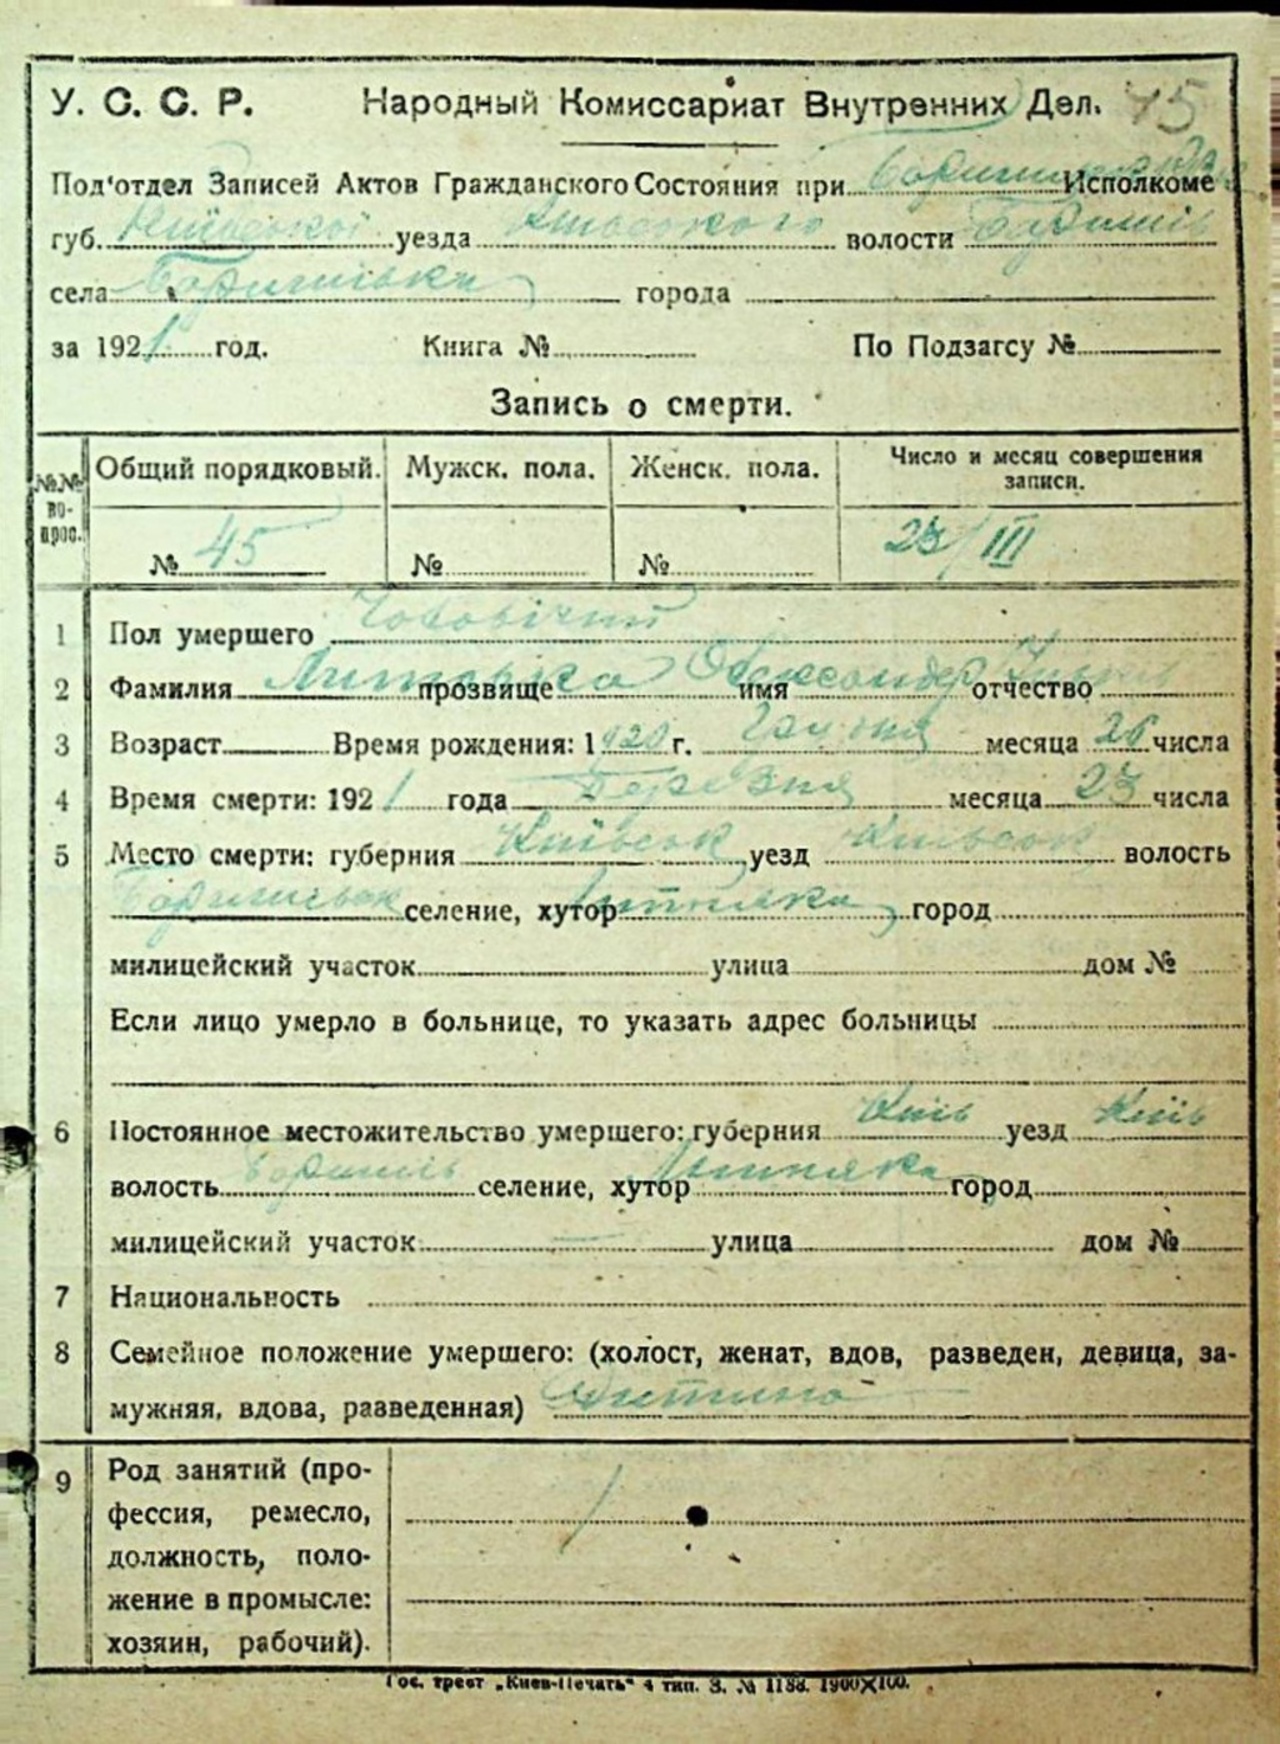 У. С. С. Р. Народный Комиссариат Внутренних Дел. 45
Под'отдел Записей Актов Гражданского Состояния при Исполкоме
губ. Київської уезда Київського волости
села города
за 1921 год. Книга № По Подзагсу №
Запись о смерти.
№№ во-прос. Общий порядковый. Мужск. пола. Женск. пола. Число и месяц совершения записи.
№ 45 № № 23/III
1 Пол умершего Чоловічий
2 Фамилия прозвище имя Олександер отчество
3 Возраст Время рождения: 1920 г. месяца 26 числа
4 Время смерти: 1921 года Березня месяца 23 числа
5 Место смерти: губерния Київськ уезд Київськ волость
селение, хутор город
милицейский участок улица дом №
Если лицо умерло в больнице, то указать адрес больницы
6 Постоянное местожительство умершего: губерния Київ уезд Київ
волость селение, хутор город
милицейский участок улица дом №
7 Национальность
8 Семейное положение умершего: (холост, женат, вдов, разведен, девица, за-
мужняя, вдова, разведенная) Дитина
9 Род занятий (про-
фессия, ремесло,
должность, поло-
жение в промысле:
хозяин, рабочий).
Гос. трест „Киев-Печать“ 4 тип. З. № 1188. 1900×100.